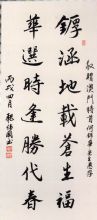 敬贈澳門特首何厚鏵先生惠存
涵地載蒼生福
華選時逢勝代春
丙戌四月